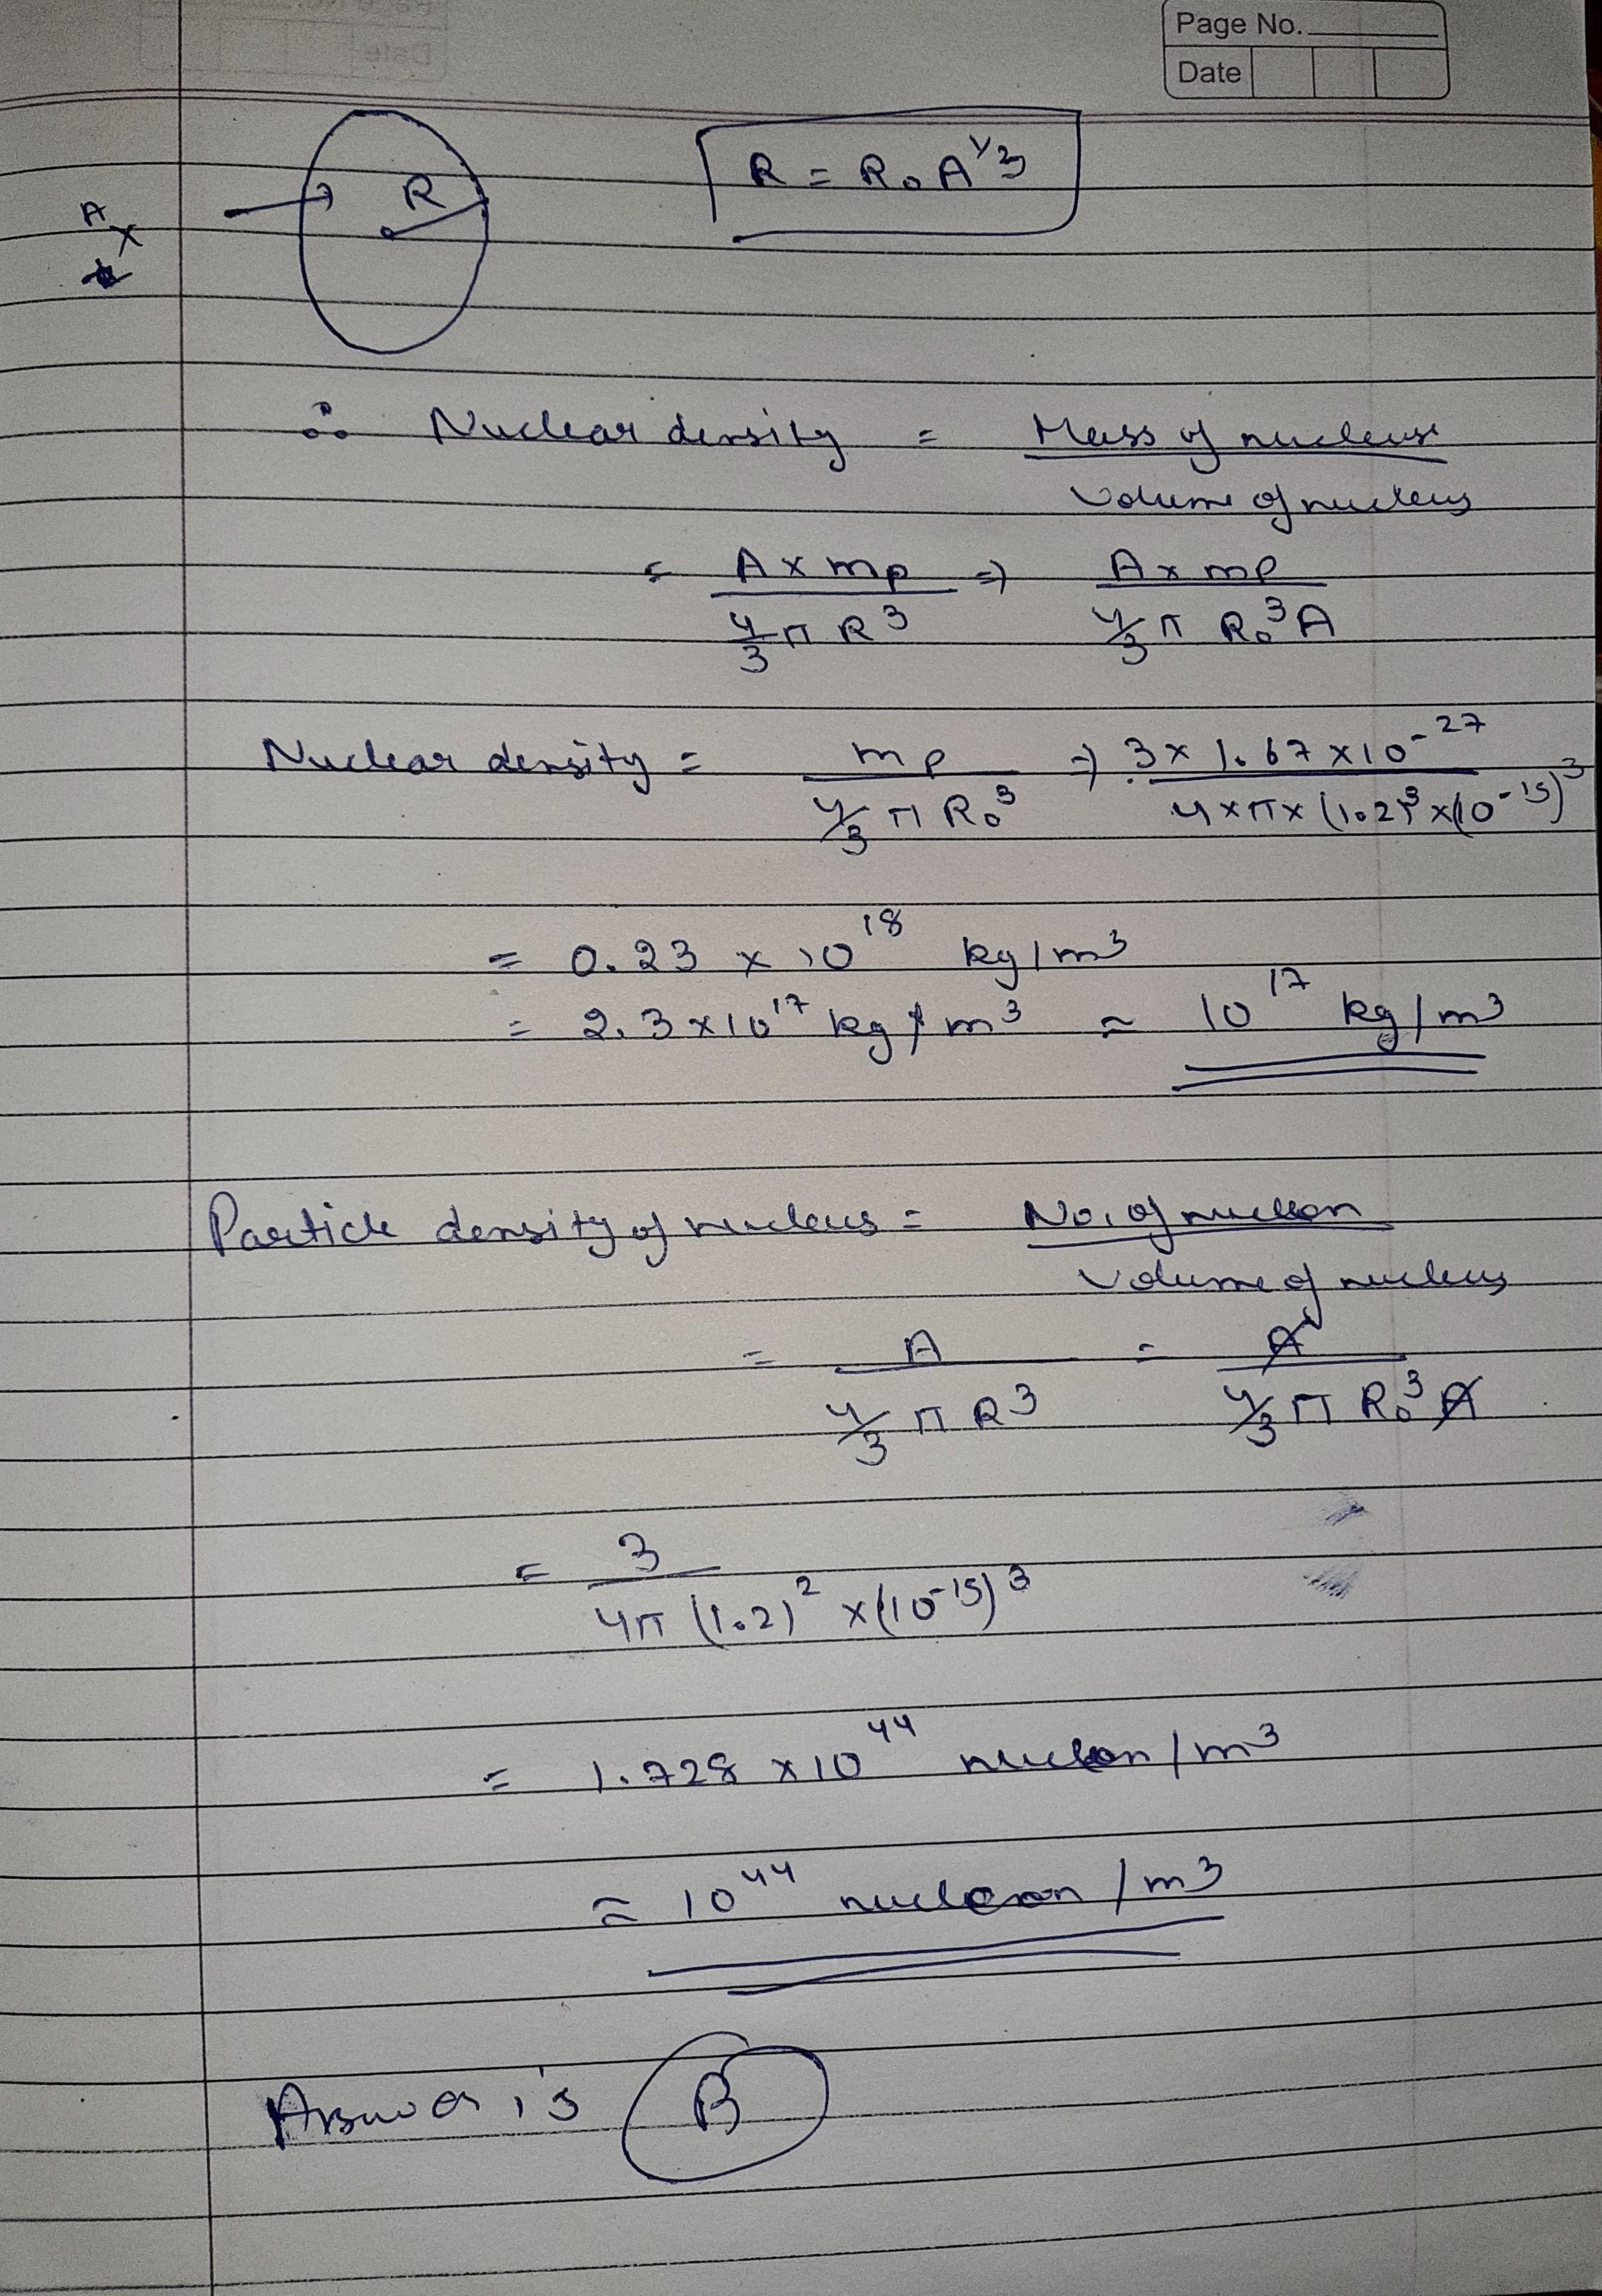 Page No.
Date
R = R₀ A^1/3
A
X
R
∴ Nuclear density = Mass of nucleus
Volume of nucleus
= A x mp => A x mp
4/3 π R³ 4/3 π R₀³ A
Nuclear density = mp => 3 x 1.67 x 10^-27
4/3 π R₀³ 4 x π x (1.2)³ x (10^-15)³
= 0.23 x 10^18 kg/m³
= 2.3 x 10^17 kg/m³ ≈ 10^17 kg/m³
Particle density of nucleus = No. of nucleon
Volume of nucleus
= A = A
4/3 π R³ 4/3 π R₀³ A
= 3
4π (1.2)² x (10^-15)³
= 1.728 x 10^44 nucleon/m³
≈ 10^44 nucleon/m³
Answer is B